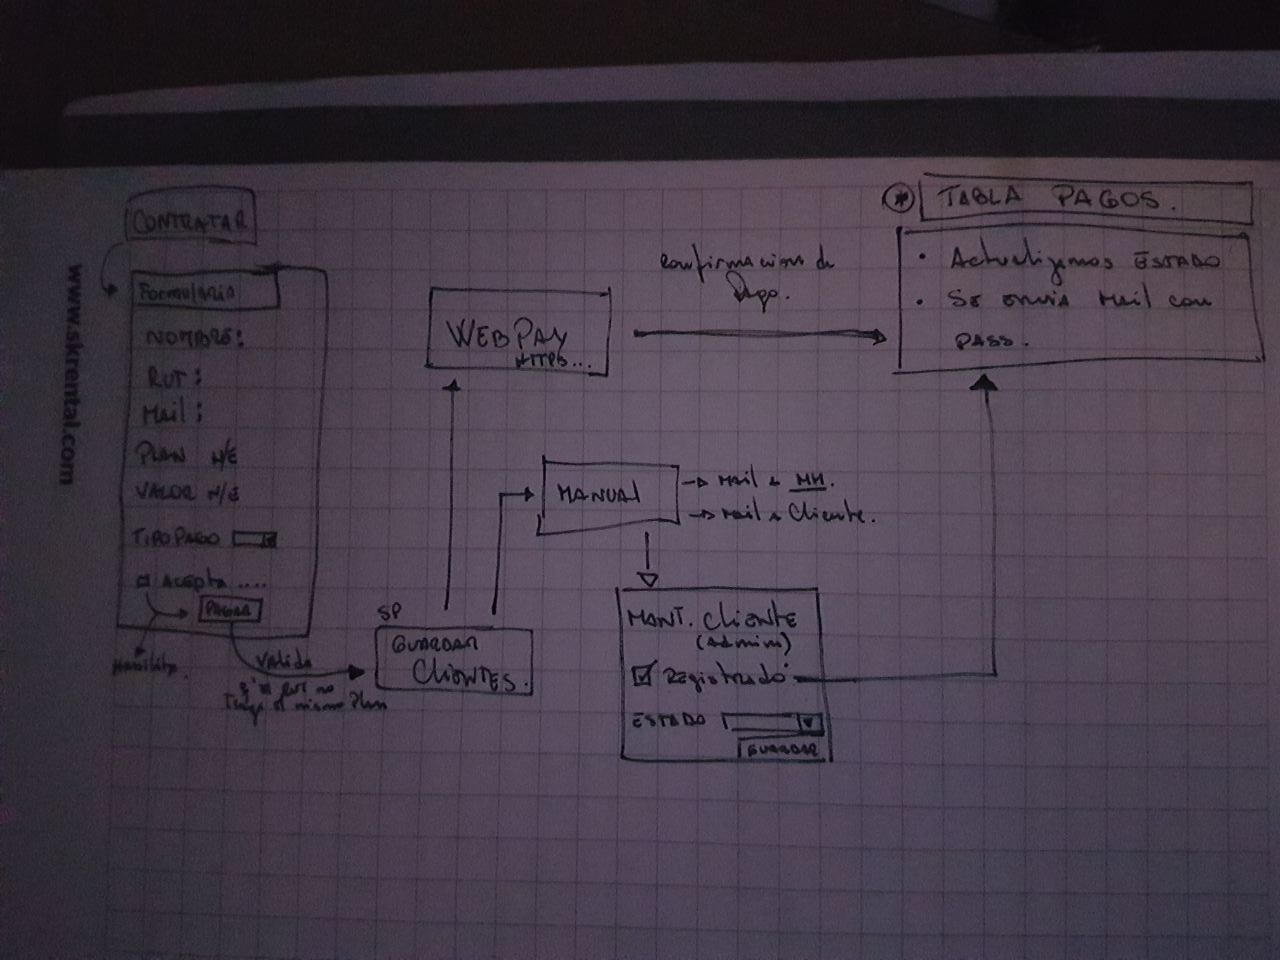 www.skrental.com
CONTRATAR
Formulario
NOMBRE:
RUT:
Mail:
PLAN N/E
VALOR N/E
TIPO PAGO
Acepta ....
PAGAR
Valida
mismo Plan
SP
GUARDAR
CLIENTES.
WEBPAY
HTTPS...
confirmacion de
Pago.
MANUAL
Mail a MH.
Mail a Cliente.
MANT. Cliente
(Admin)
Registrado
ESTADO
GUARDAR
* TABLA PAGOS.
• Actualizamos ESTADO
• Se envia Mail con
PASS.